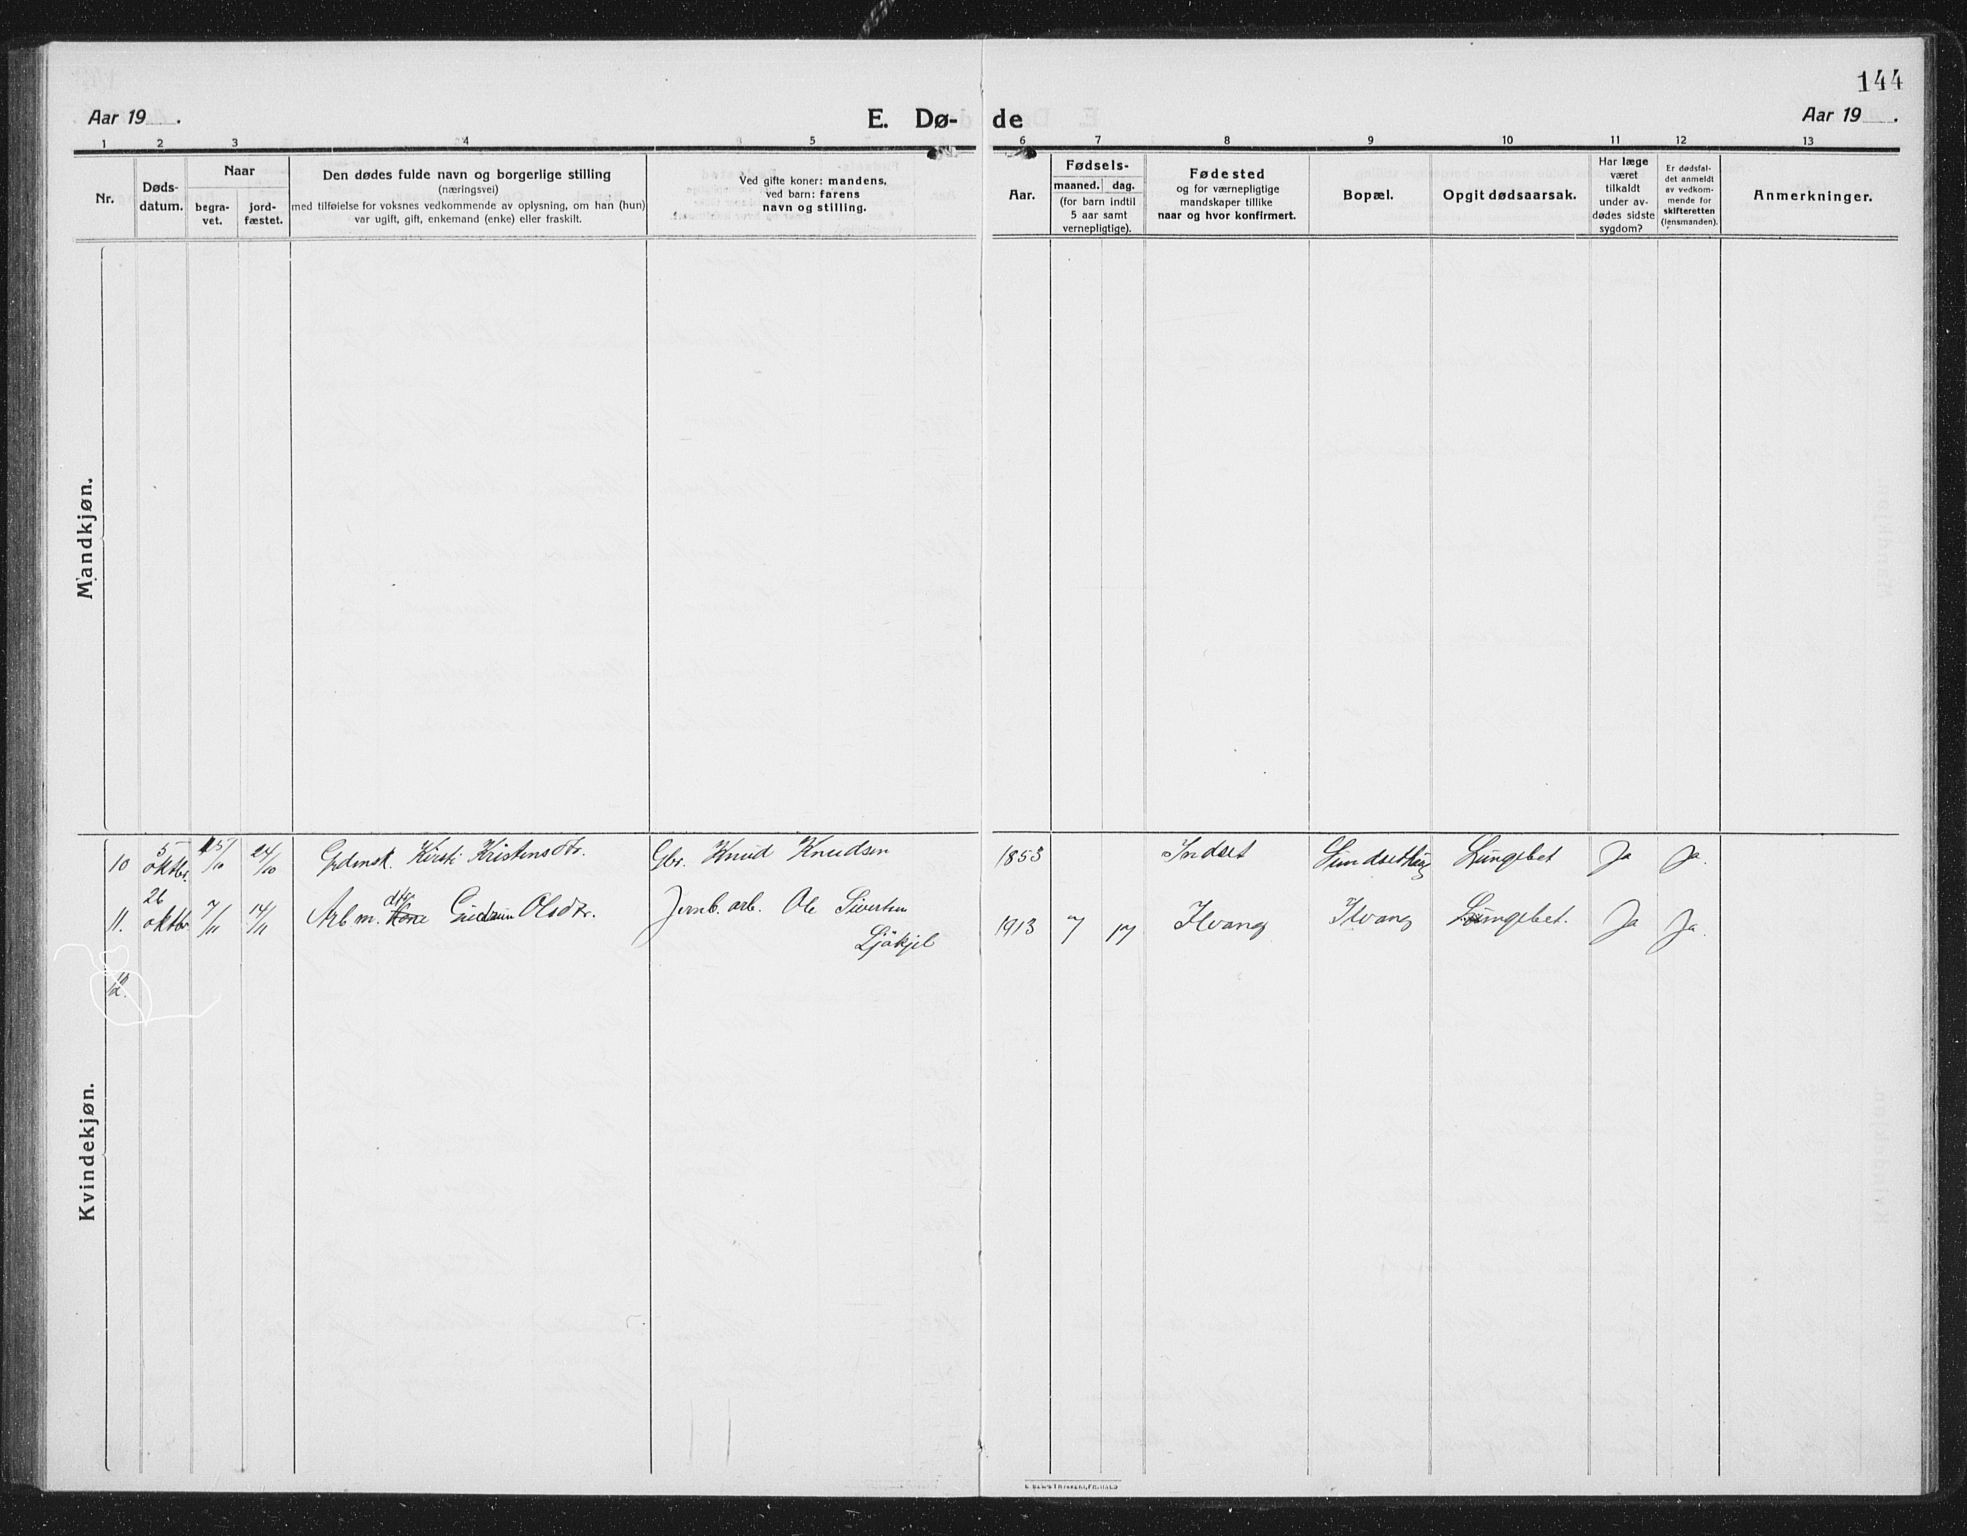 144
Aar 19 .
E. Dø-
de
Aar 19 .
1 2 3 4 5 6 7 8 9 10 11 12 13
Nr.
Døds-
datum.
Naar
begra-
vet.
jord-
fæstet.
Den dødes fulde navn og borgerlige stilling
(næringsvei)
med tilføielse for voksnes vedkommende av oplysning, om han (hun)
var ugift, gift, enkemand (enke) eller fraskilt.
Ved gifte koner: mandens,
ved barn: farens
navn og stilling.
Aar.
Fødsels-
maaned. dag.
(for barn indtil
5 aar samt
vernepligtige).
Fødested
og for værnepligtige
mandskaper tillike
naar og hvor konfirmert.
Bopæl.
Opgit dødsaarsak.
Har læge
været
tilkaldt
under av-
dødes sidste
sygdom?
Er dødsfal-
det anmeldt
av vedkom-
mende for
skifteretten
(lensmanden).
Anmerkninger.
Mandkjøn.
Kvindekjøn.
10 5 oktbr. 15/10 24/10 Kirsti Kristensdtr. Gbr. Knud Knudsen 1853 Indset Lungebet Ja Ja.
11. 26 oktbr 7/11 14/11 Arb m. Kone dtr Gudrun Olsdtr. Jernb. arb. Ole Sivertsen 1913 7 17 Ilvang Ilvang Lungebet. Ja Ja.
Ljåkjel
12.